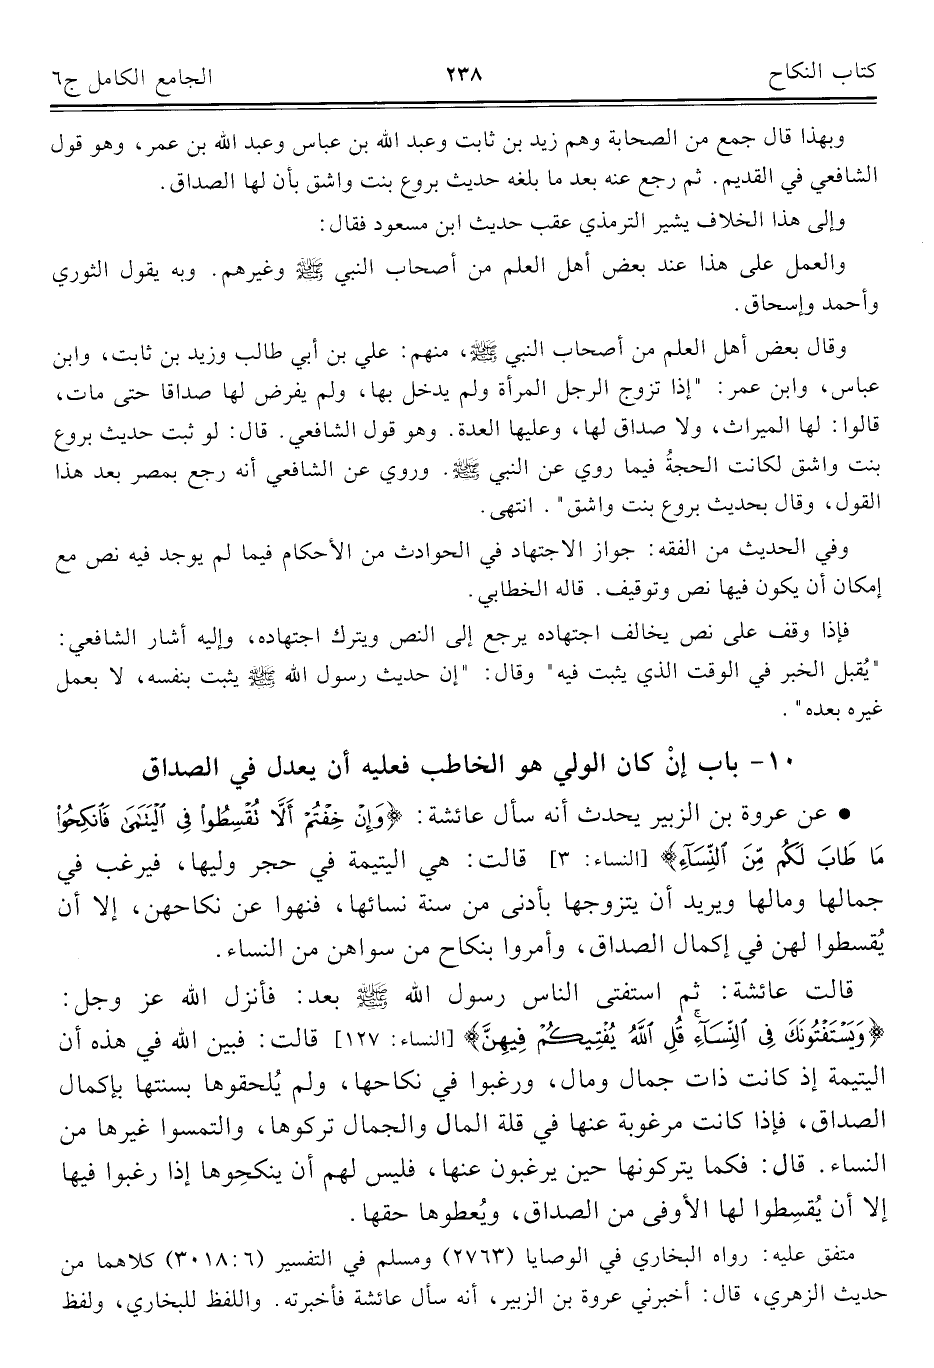 كتاب النكاح ٢٣٨ الجامع الكامل ج٦
وبهذا قال جمع من الصحابة وهم زيد بن ثابت وعبد الله بن عباس وعبد الله بن عمر، وهو قول
الشافعي في القديم. ثم رجع عنه بعد ما بلغه حديث بروع بنت واشق بأن لها الصداق.
وإلى هذا الخلاف يشير الترمذي عقب حديث ابن مسعود فقال:
والعمل على هذا عند بعض أهل العلم من أصحاب النبي ﷺ وغيرهم. وبه يقول الثوري
وأحمد وإسحاق.
وقال بعض أهل العلم من أصحاب النبي ﷺ، منهم: علي بن أبي طالب وزيد بن ثابت، وابن
عباس، وابن عمر: "إذا تزوج الرجل المرأة ولم يدخل بها، ولم يفرض لها صداقا حتى مات،
قالوا: لها الميراث، ولا صداق لها، وعليها العدة. وهو قول الشافعي. قال: لو ثبت حديث بروع
بنت واشق لكانت الحجةُ فيما روي عن النبي ﷺ. وروي عن الشافعي أنه رجع بمصر بعد هذا
القول، وقال بحديث بروع بنت واشق". انتهى.
وفي الحديث من الفقه: جواز الاجتهاد في الحوادث من الأحكام فيما لم يوجد فيه نص مع
إمكان أن يكون فيها نص وتوقيف. قاله الخطابي.
فإذا وقف على نص يخالف اجتهاده يرجع إلى النص ويترك اجتهاده، وإليه أشار الشافعي:
"يُقبل الخبر في الوقت الذي يثبت فيه" وقال: "إن حديث رسول الله ﷺ يثبت بنفسه، لا بعمل
غيره بعده".
١٠- باب إنْ كان الولي هو الخاطب فعليه أن يعدل في الصداق
• عن عروة بن الزبير يحدث أنه سأل عائشة: ﴿وَإِنْ خِفْتُمْ أَلَّا نُقْسِطُوا۟ فِى ٱلْيَتَٰمَىٰ فَٱنكِحُوا۟
مَا طَابَ لَكُم مِّنَ ٱلنِّسَآءِ﴾ [النساء: ٣] قالت: هي اليتيمة في حجر وليها، فيرغب في
جمالها ومالها ويريد أن يتزوجها بأدنى من سنة نسائها، فنهوا عن نكاحهن، إلا أن
يُقسطوا لهن في إكمال الصداق، وأمروا بنكاح من سواهن من النساء.
قالت عائشة: ثم استفتى الناس رسول الله ﷺ بعد: فأنزل الله عز وجل:
﴿وَيَسْتَفْتُونَكَ فِى ٱلنِّسَآءِ ۖ قُلِ ٱللَّهُ يُفْتِيكُمْ فِيهِنَّ﴾ [النساء: ١٢٧] قالت: فبين الله في هذه أن
اليتيمة إذ كانت ذات جمال ومال، ورغبوا في نكاحها، ولم يُلحقوها بسنتها بإكمال
الصداق، فإذا كانت مرغوبة عنها في قلة المال والجمال تركوها، والتمسوا غيرها من
النساء. قال: فكما يتركونها حين يرغبون عنها، فليس لهم أن ينكحِوها إذا رغبوا فيها
إلا أن يُقسِطوا لها الأوفى من الصداق، ويُعطوها حقها.
متفق عليه: رواه البخاري في الوصايا (٢٧٦٣) ومسلم في التفسير (٣٠١٨:٦) كلاهما من
حديث الزهري، قال: أخبرني عروة بن الزبير، أنه سأل عائشة فأخبرته. واللفظ للبخاري، ولفظ